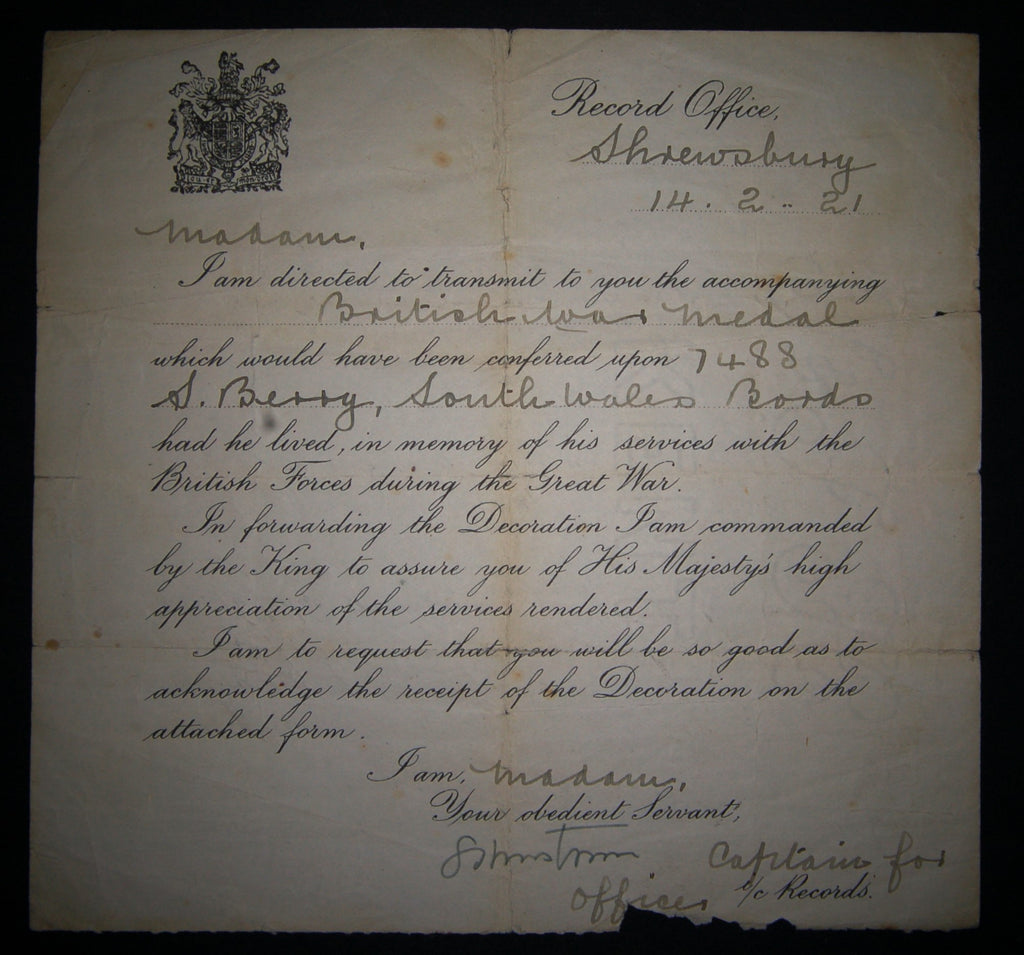 Record Office,
Shrewsbury
14. 2.. 21
Madam,
I am directed to transmit to you the accompanying
British War Medal
which would have been conferred upon 7488
S. Berry, South Wales Bords
had he lived, in memory of his services with the
British Forces during the Great War.
In forwarding the Decoration I am commanded
by the King to assure you of His Majesty's high
appreciation of the services rendered.
I am to request that you will be so good as to
acknowledge the receipt of the Decoration on the
attached form.
I am, Madam,
Your obedient Servant,
Captain for
Officer i/c Records.